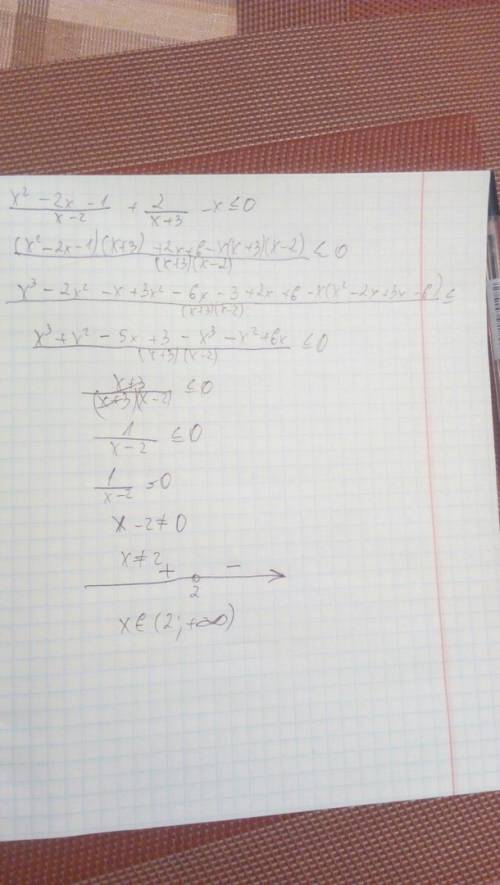 (x² - 2x - 1)/(x-2) + 2/(x+3) - x ≤ 0
((x² - 2x - 1)(x+3) + 2x+6 - x(x+3)(x-2))/((x+3)(x-2)) ≤ 0
(x³ - 2x² - x + 3x² - 6x - 3 + 2x + 6 - x(x² - 2x + 3x - 6))/((x+3)(x-2)) ≤
(x³ + x² - 5x + 3 - x³ - x² + 6x)/((x+3)(x-2)) ≤ 0
(x+3)/((x+3)(x-2)) ≤ 0
1/(x-2) ≤ 0
1/(x-2) = 0
x - 2 ≠ 0
x ≠ 2
+ -
2
x ∈ (2; +∞)